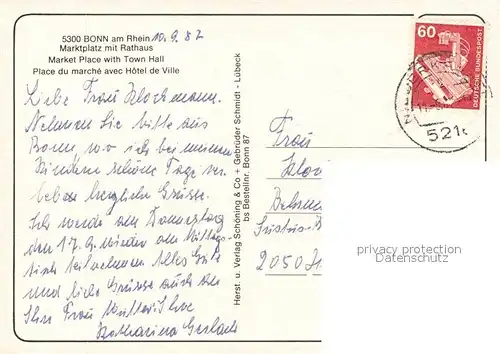 5300 BONN am Rhein 10.9.87
Marktplatz mit Rathaus
Market Place with Town Hall
Place du marché avec Hôtel de Ville
Liebe Frau Klochmann.
Nehmen Sie bitte aus
Bonn, wo ich bei meinen
Kindern schöne Tage ver-
lebe herzliche Grüsse.
Ich werde am Donnerstag
den 17.9. wieder am Mittags-
tisch teilnehmen Alles Gute
und liebe Grüsse auch an
Ihre Frau Mutter Ihre
Katharina Gerlach
Herst. u. Verlag Schöning & Co + Gebrüder Schmidt - Lübeck
bs Bestellnr. Bonn 87
60
DEUTSCHE BUNDESPOST
521
Frau
2050
privacy protection
ansichtskartenversand.com